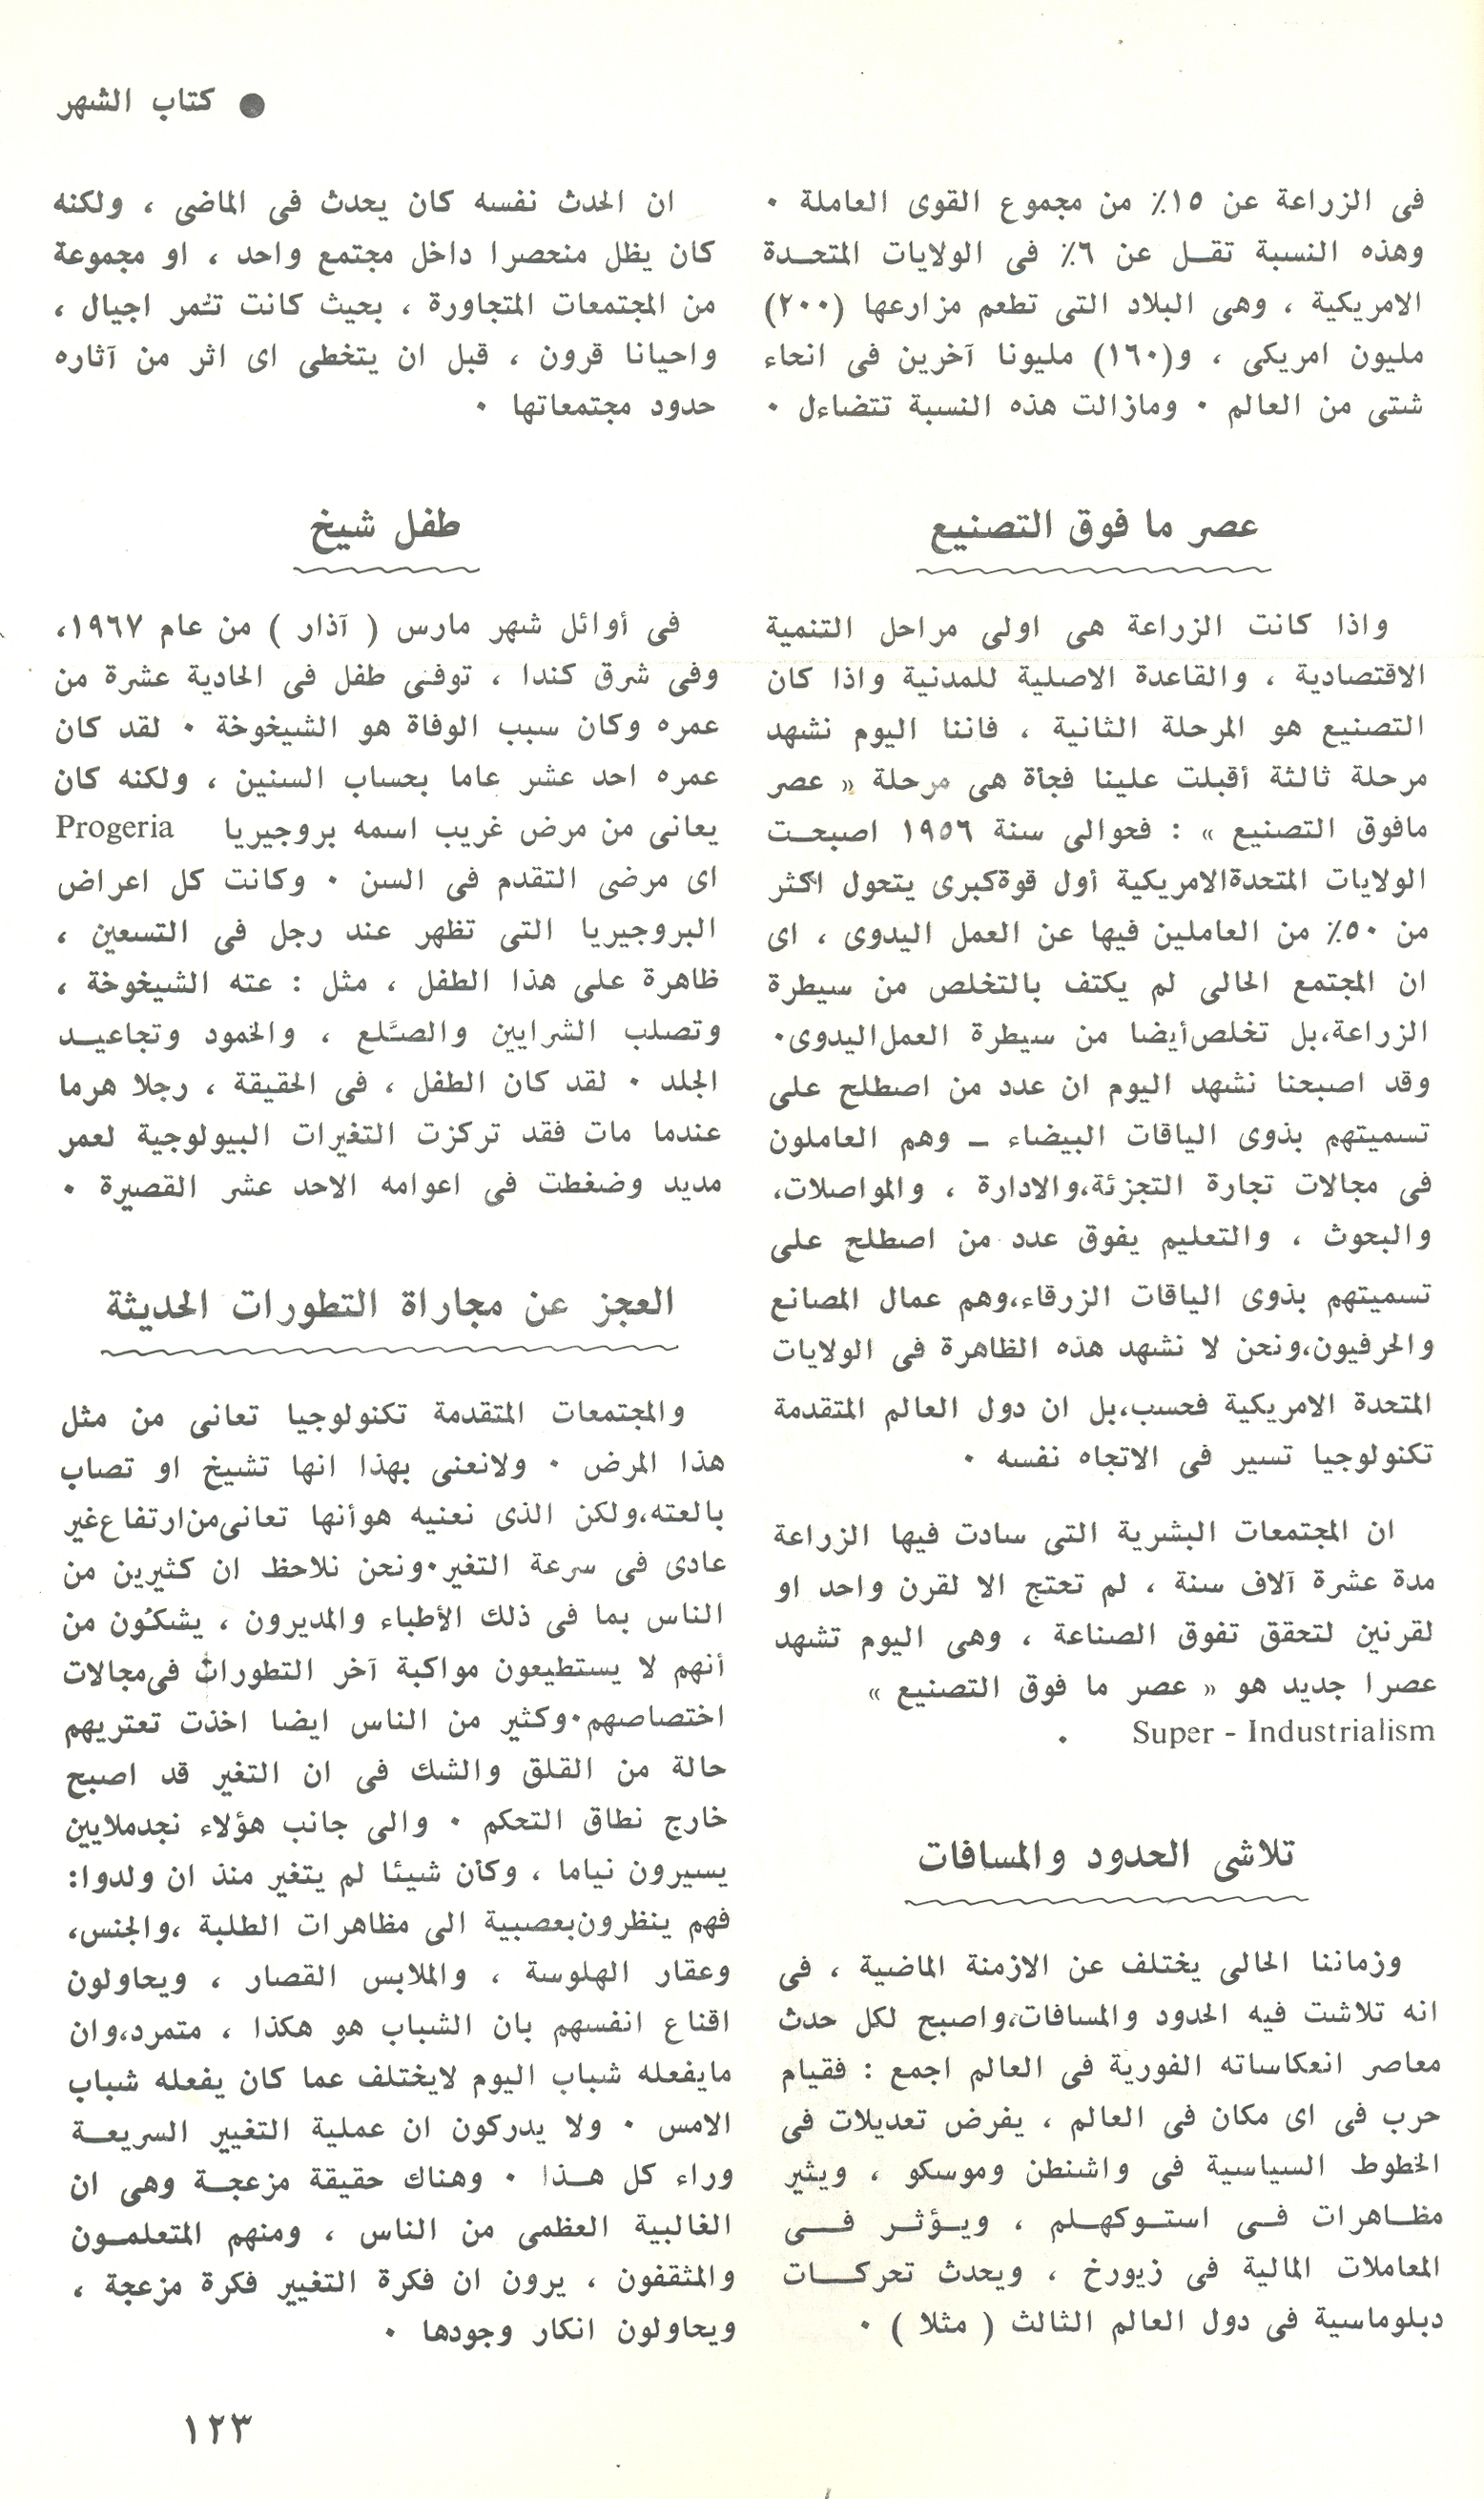 ● كتاب الشهر
فى الزراعة عن ١٥٪ من مجموع القوى العاملة ٠
وهذه النسبة تقـل عن ٦٪ فى الولايات المتحـدة
الامريكية ، وهى البلاد التى تطعم مزارعها (٢٠٠)
مليون امريكى ، و(١٦٠) مليونا آخرين فى انحاء
شتى من العالم ٠ ومازالت هذه النسبة تتضاءل ٠
عصر ما فوق التصنيع
واذا كانت الزراعة هى اولى مراحل التنمية
الاقتصادية ، والقاعدة الاصلية للمدنية واذا كان
التصنيع هو المرحلة الثانية ، فاننا اليوم نشهد
مرحلة ثالثة أقبلت علينا فجأة هى مرحلة « عصر
مافوق التصنيع » : فحوالى سنة ١٩٥٦ اصبحـت
الولايات المتحدة الامريكية أول قوة كبرى يتحول اكثر
من ٥٠٪ من العاملين فيها عن العمل اليدوى ، اى
ان المجتمع الحالى لم يكتف بالتخلص من سيطرة
الزراعة،بل تخلص أيضا من سيطرة العمل اليدوى٠
وقد اصبحنا نشهد اليوم ان عدد من اصطلح على
تسميتهم بذوى الياقات البيضاء ــ وهم العاملون
فى مجالات تجارة التجزئة،والادارة ، والمواصلات،
والبحوث ، والتعليم يفوق عدد من اصطلح على
تسميتهم بذوى الياقات الزرقاء،وهم عمال المصانع
والحرفيون،ونحن لا نشهد هذه الظاهرة فى الولايات
المتحدة الامريكية فحسب،بل ان دول العالم المتقدمة
تكنولوجيا تسير فى الاتجاه نفسه ٠
ان المجتمعات البشرية التى سادت فيها الزراعة
مدة عشرة آلاف سنة ، لم تحتج الا لقرن واحد او
لقرنين لتحقق تفوق الصناعة ، وهى اليوم تشهد
عصرا جديد هو « عصر ما فوق التصنيع »
Super - Industrialism ٠
تلاشى الحدود والمسافات
وزماننا الحالى يختلف عن الازمنة الماضية ، فى
انه تلاشت فيه الحدود والمسافات،واصبح لكل حدث
معاصر انعكاساته الفورية فى العالم اجمع : فقيام
حرب فى اى مكان فى العالم ، يفرض تعديلات فى
الخطوط السياسية فى واشنطن وموسكو ، ويثير
مظـاهرات فـى استـوكهـلم ، ويـؤثـر فـى
المعاملات المالية فى زيورخ ، ويحدث تحركــات
دبلوماسية فى دول العالم الثالث ( مثلا ) ٠
ان الحدث نفسه كان يحدث فى الماضى ، ولكنه
كان يظل منحصرا داخل مجتمع واحد ، او مجموعة
من المجتمعات المتجاورة ، بحيث كانت تثمر اجيال ،
واحيانا قرون ، قبل ان يتخطى اى اثر من آثاره
حدود مجتمعاتها ٠
طفل شيخ
فى أوائل شهر مارس ( آذار ) من عام ١٩٦٧،
وفى شرق كندا ، توفى طفل فى الحادية عشرة من
عمره وكان سبب الوفاة هو الشيخوخة ٠ لقد كان
عمره احد عشر عاما بحساب السنين ، ولكنه كان
يعانى من مرض غريب اسمه بروجيريا Progeria
اى مرضى التقدم فى السن ٠ وكانت كل اعراض
البروجيريا التى تظهر عند رجل فى التسعين ،
ظاهرة على هذا الطفل ، مثل : عته الشيخوخة ،
وتصلب الشرايين والصَّلع ، والخمود وتجاعيـد
الجلد ٠ لقد كان الطفل ، فى الحقيقة ، رجلا هرما
عندما مات فقد تركزت التغيرات البيولوجية لعمر
مديد وضغطت فى اعوامه الاحد عشر القصيرة ٠
العجز عن مجاراة التطورات الحديثة
والمجتمعات المتقدمة تكنولوجيا تعانى من مثل
هذا المرض ٠ ولانعنى بهذا انها تشيخ او تصاب
بالعته،ولكن الذى نعنيه هوأنها تعانى من ارتفاع غير
عادى فى سرعة التغير٠ونحن نلاحظ ان كثيرين من
الناس بما فى ذلك الأطباء والمديرون ، يشكون من
أنهم لا يستطيعون مواكبة آخر التطورات فى مجالات
اختصاصهم٠وكثير من الناس ايضا اخذت تعتريهم
حالة من القلق والشك فى ان التغير قد اصبح
خارج نطاق التحكم ٠ والى جانب هؤلاء نجدملايين
يسيرون نياما ، وكأن شيئا لم يتغير منذ ان ولدوا:
فهم ينظرون بعصبية الى مظاهرات الطلبة ،والجنس،
وعقار الهلوسة ، والملابس القصار ، ويحاولون
اقناع انفسهم بان الشباب هو هكذا ، متمرد،وان
مايفعله شباب اليوم لايختلف عما كان يفعله شباب
الامس ٠ ولا يدركون ان عملية التغيير السريعـة
وراء كل هـذا ٠ وهناك حقيقة مزعجـة وهى ان
الغالبية العظمى من الناس ، ومنهم المتعلمـون
والمثقفون ، يرون ان فكرة التغيير فكرة مزعجة ،
ويحاولون انكار وجودها ٠
١٢٣